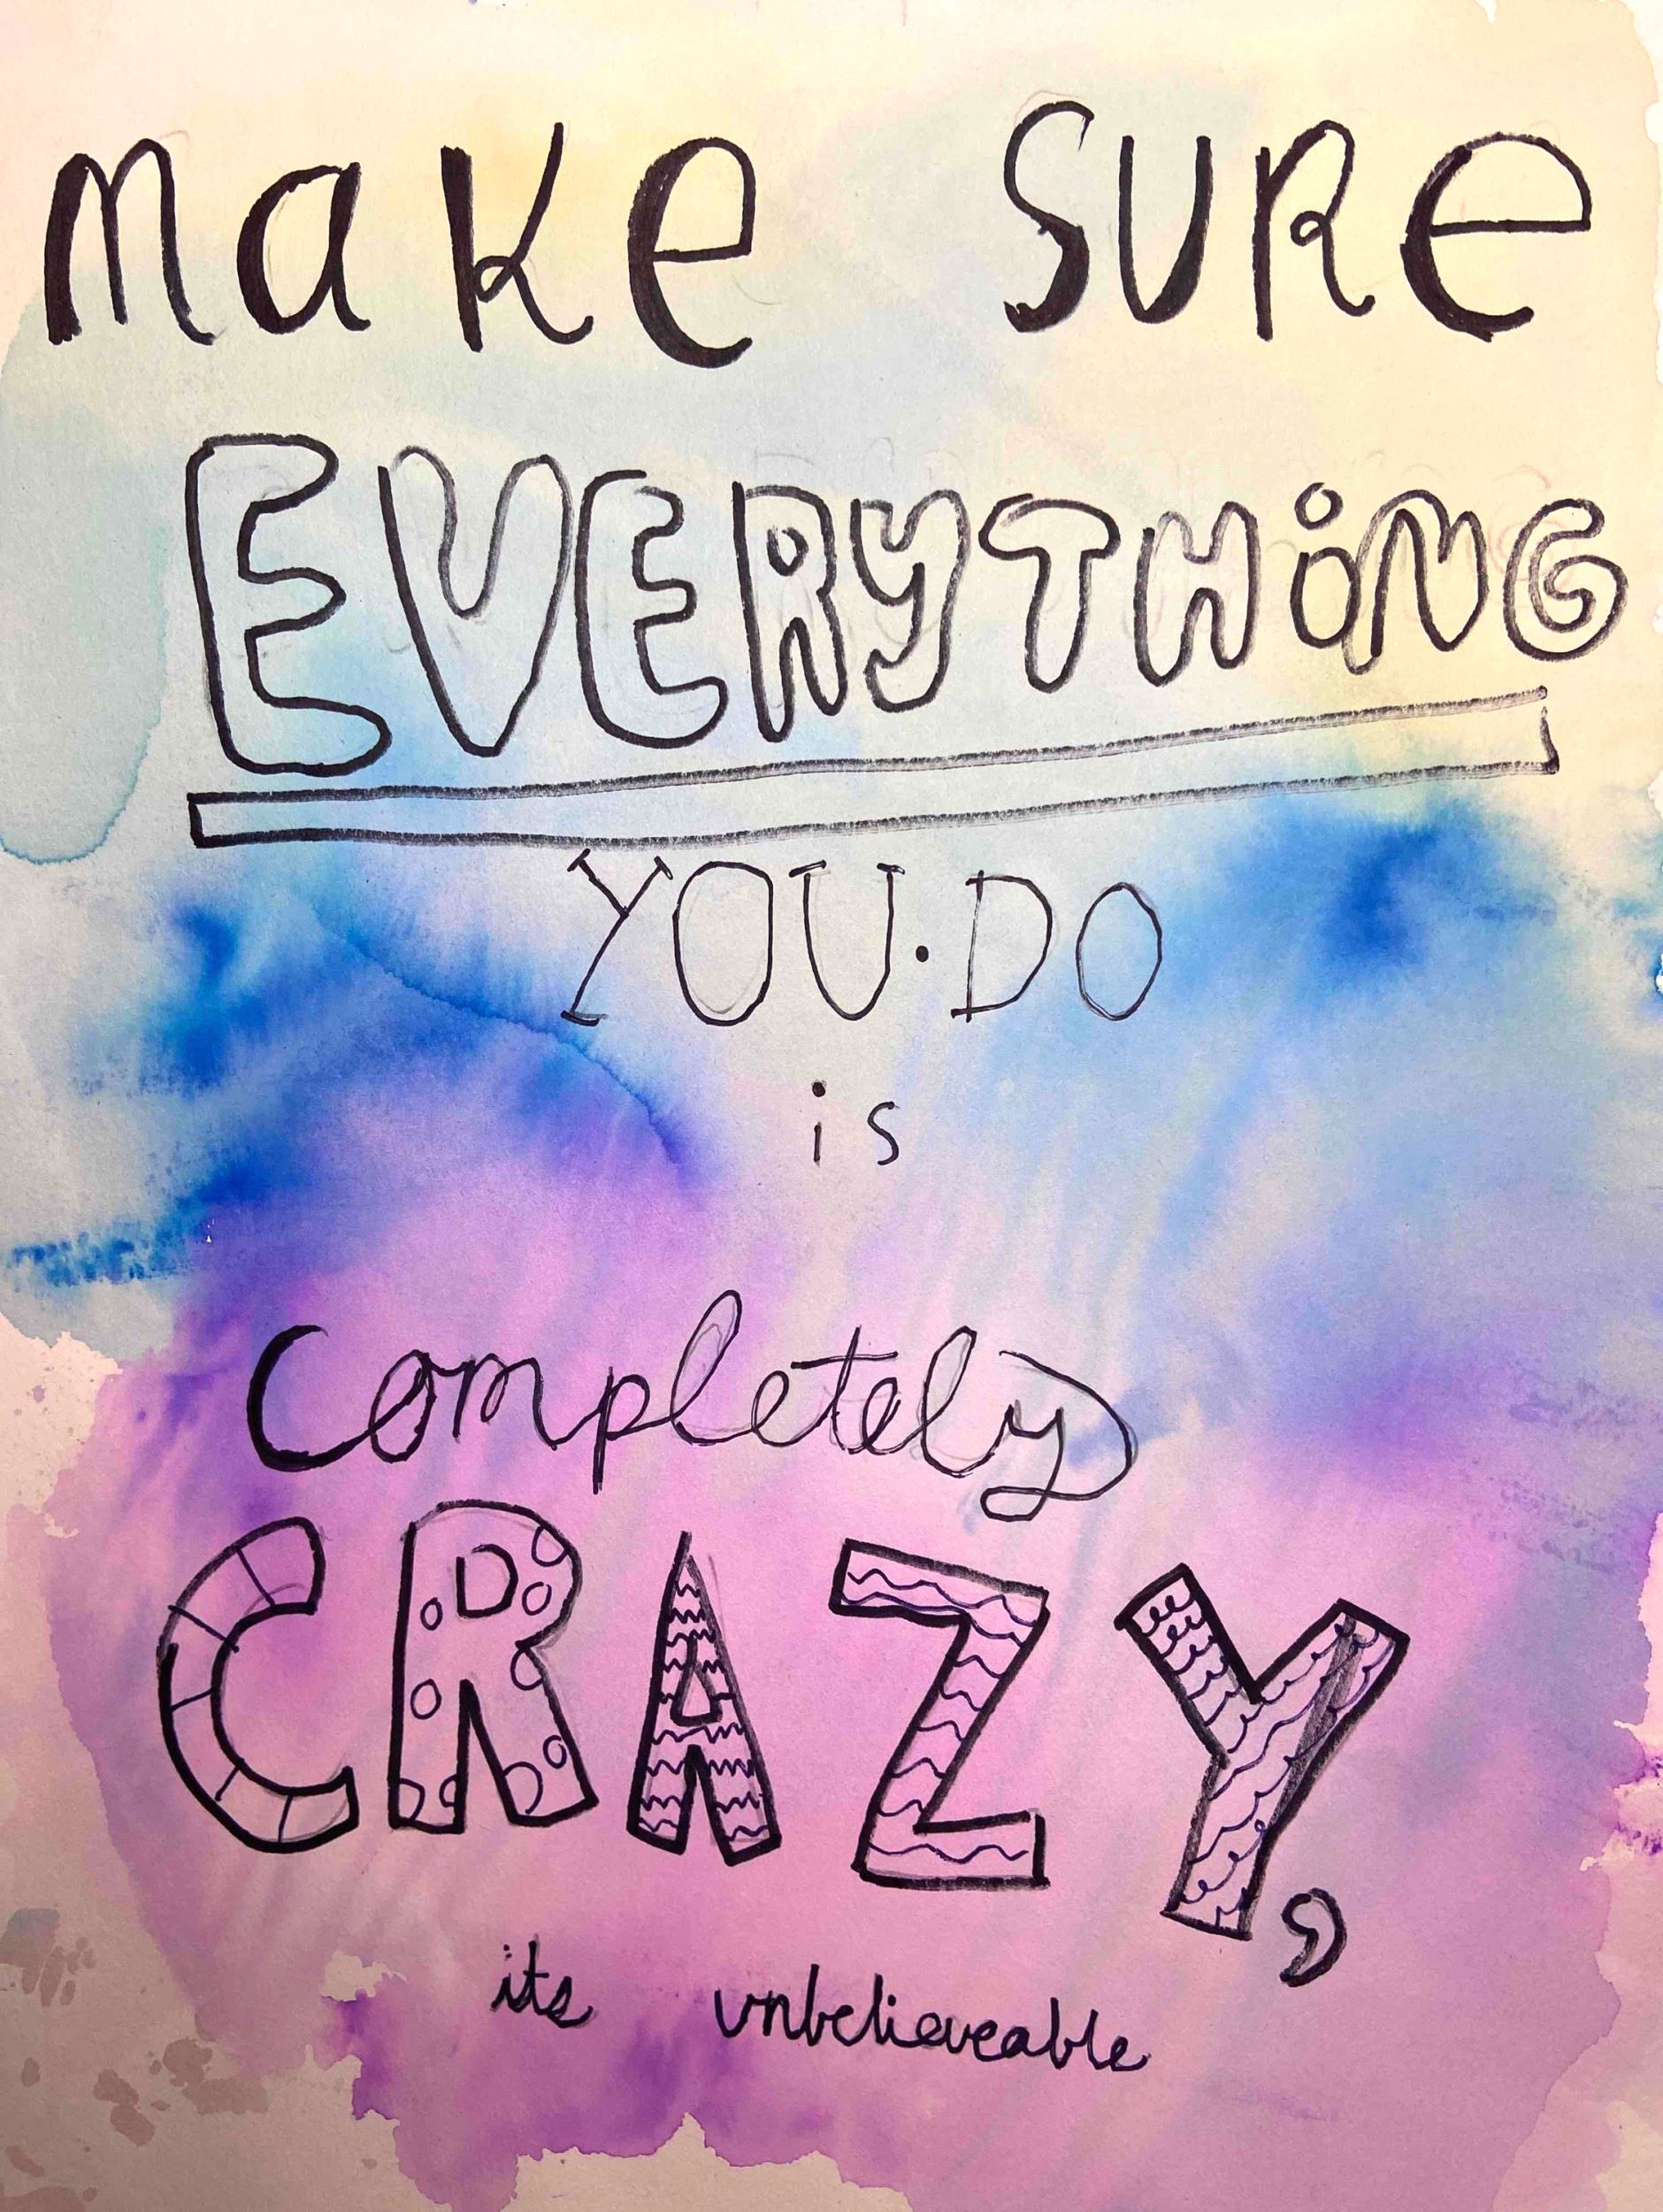 make sure
EVERYTHiNG
YOU·DO
is
completely
CRAZY,
its unbelieveable